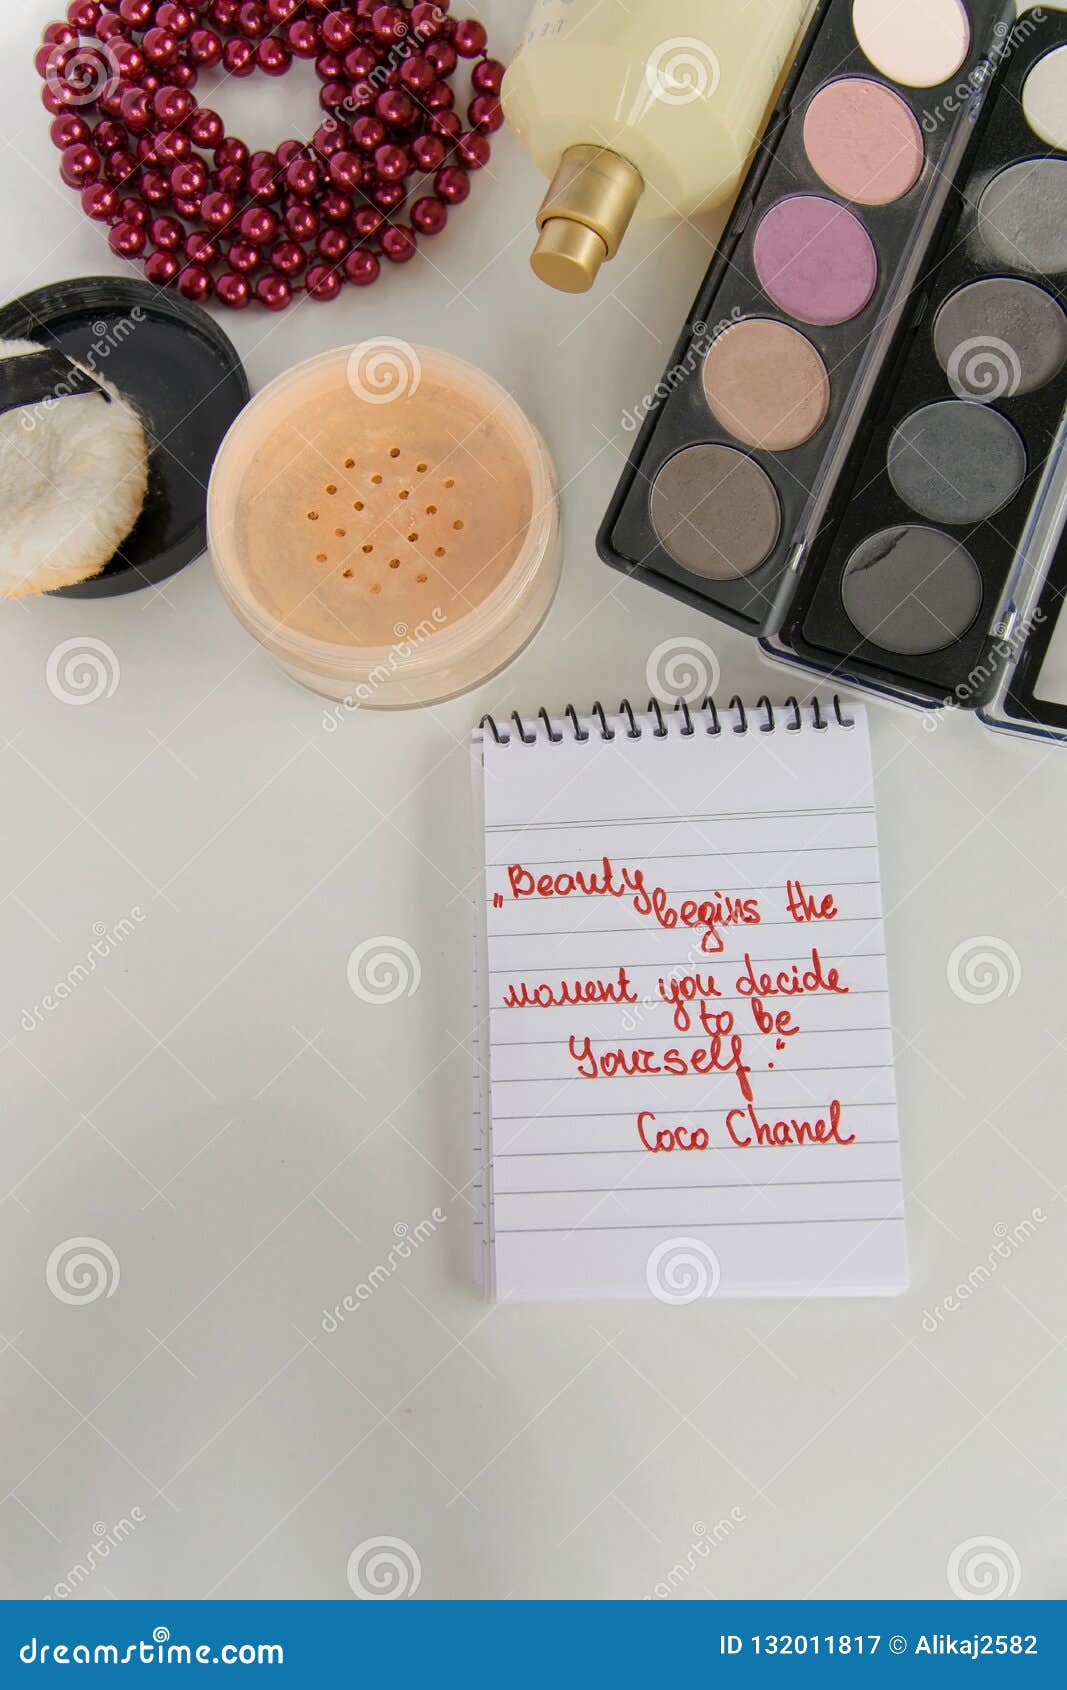 „Beauty
begins the
moment you decide
to be
Yourself."
Coco Chanel
dreamstime.com
ID 132011817 © Alikaj2582